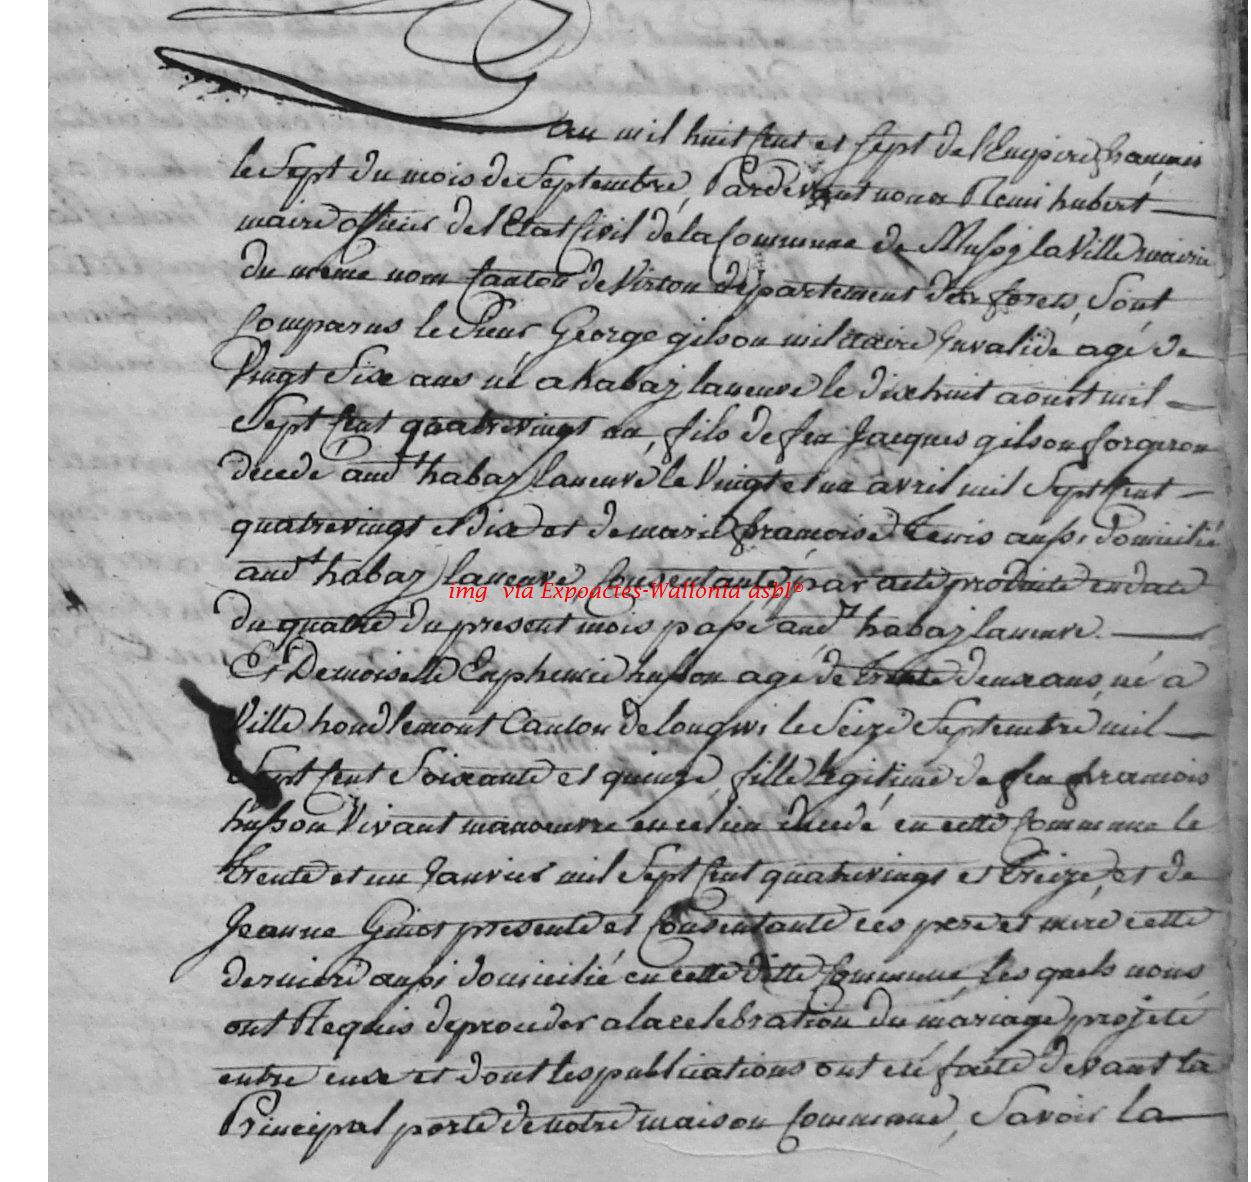 an mil huit Cent et sept de l'Empire francais
le Sept du mois de Septembre, Pardevant nous Remi hubert
maire officier de l'Etat Civil de la Commune de Mussy la Ville mairie
du même nom Canton de Virton département des forets, Sont
Comparus le Sieur George gilson militaire Invalide agé de
Vingt Six ans né a habay laneuve le dixhuit aoust mil
Sept Cent quatrevingt un, fils de feu Jacques gilson forgeron
decedé aud.t habay laneuve le Vingt et un avril mil Sept Cent
quatrevingt et dix et de marie françoise aussi Domicilié
aud.t habay laneuve Consentante par acte produite en date
du quatre du present mois passé aud.t habay laneuve.
Et Demoiselle Euphemie husson agé de trente deux ans, né a
Ville houdlemont Canton de longwi le Seize Septembre mil
Sept Cent Soixante et quinze, fille legitime de feu francois
husson Vivant manoeuvre en ce lieu decedé en cette Commune le
trente et un Janvier mil Sept Cent quatrevingt et treize, et de
Jeanne presente et Consentante ces pere et mere cette
derniere aussi domicilié en cette ditte Commune, les quels nous
ont Requis deproceder a la celebration du mariage projeté
entre eux et dont les publications ont eté faite devant la
Principal porte de notre maison Commune, Savoir la
img via Expoactes-Wallonia asbl®